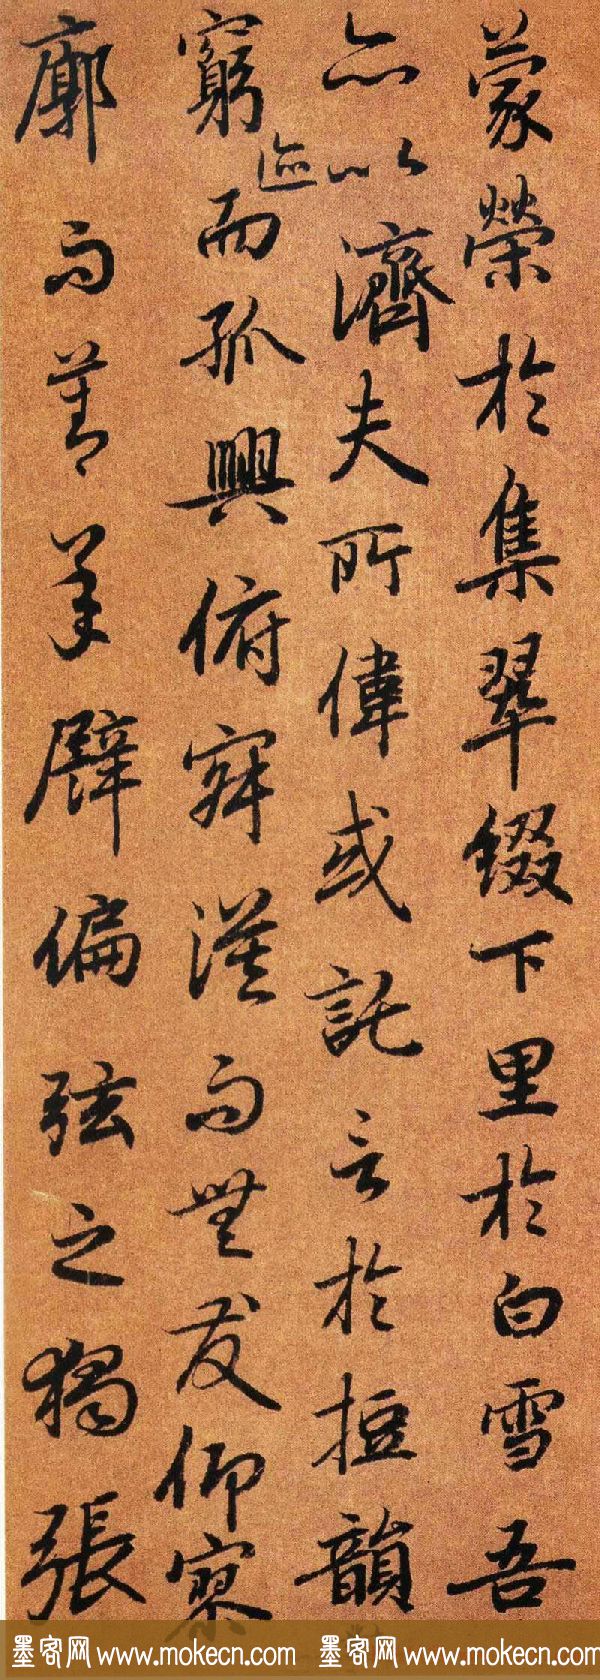 蒙榮於集翠綴下里於白雪吾
亦以濟夫所偉或託言於短韻
窮迹而孤興俯寂漠而無友仰寥
廓而莫承譬偏弦之獨張
墨客网 www.mokecn.com 墨客网 www.mokecn.com